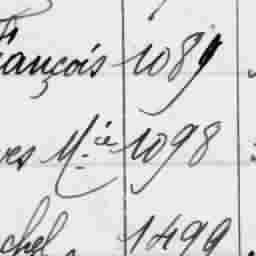 ançois 1089
es M.ie 1098
chel 1499